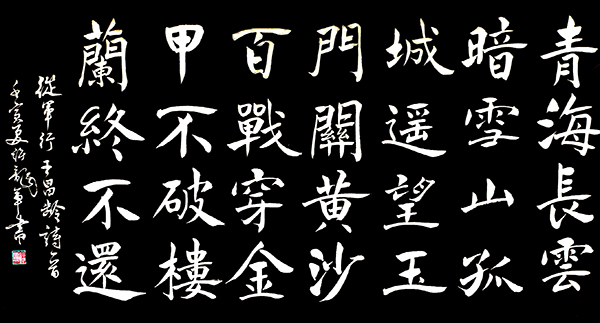 青海長雲
暗雪山孤
城遥望玉
門關黄沙
百戰穿金
甲不破樓
蘭終不還
從軍行王昌齡詩一首
壬寅夏